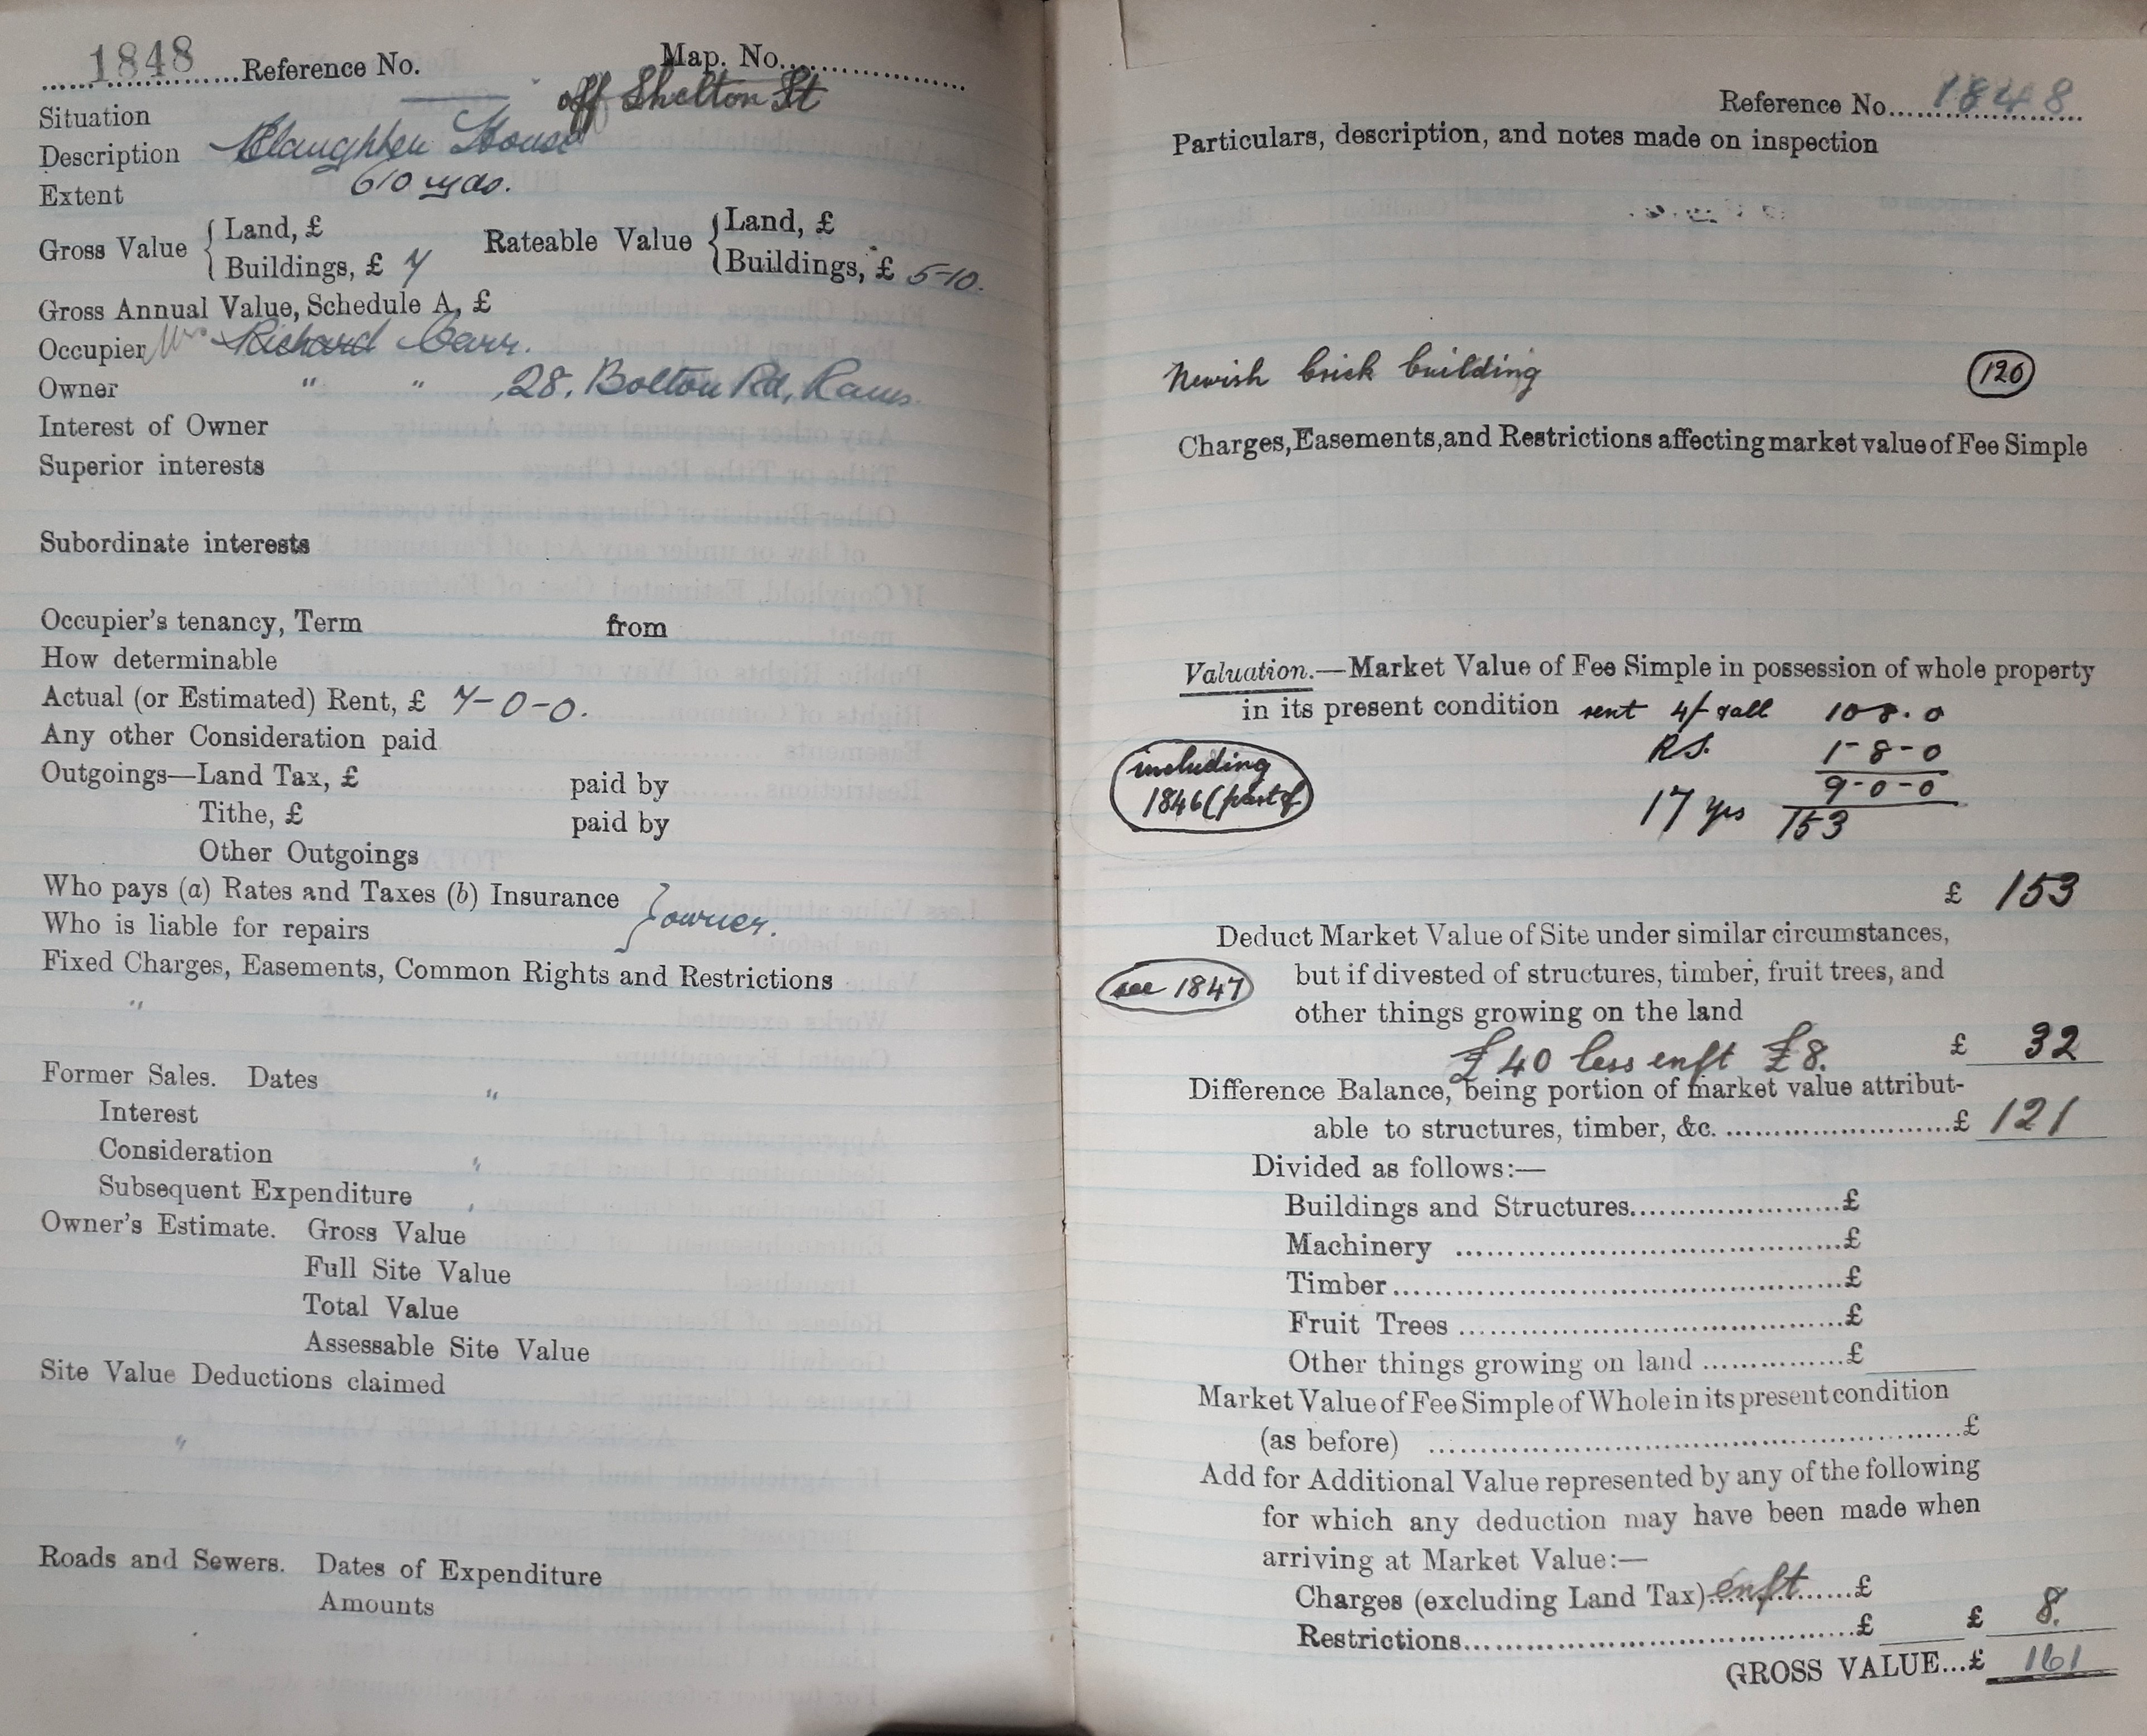 1848 Reference No. Map. No.
Situation off Shelton St
Description Slaughter House
Extent 610 yds.
Gross Value { Land, £ Rateable Value { Land, £
Buildings, £ 7 Buildings, £ 5-10.
Gross Annual Value, Schedule A, £
Occupier Mrs Richard Carr.
Owner " " , 28, Bolton Rd, Rams.
Interest of Owner
Superior interests
Subordinate interests
Occupier's tenancy, Term from
How determinable
Actual (or Estimated) Rent, £ 7-0-0.
Any other Consideration paid
Outgoings—Land Tax, £ paid by
Tithe, £ paid by
Other Outgoings
Who pays (a) Rates and Taxes (b) Insurance
Who is liable for repairs } owner.
Fixed Charges, Easements, Common Rights and Restrictions
"
Former Sales. Dates "
Interest
Consideration "
Subsequent Expenditure ,
Owner's Estimate. Gross Value
Full Site Value
Total Value
Assessable Site Value
Site Value Deductions claimed
"
Roads and Sewers. Dates of Expenditure
Amounts
Reference No. 1848
Particulars, description, and notes made on inspection
Newish brick building (120)
Charges, Easements, and Restrictions affecting market value of Fee Simple
Valuation.—Market Value of Fee Simple in possession of whole property
in its present condition rent 4/- 10 8. 0
including R.S. 1-8-0
1846 (part of) 9-0-0
17 yrs 153
£ 153
Deduct Market Value of Site under similar circumstances,
see 1847 but if divested of structures, timber, fruit trees, and
other things growing on the land
£40 less enft £8. £ 32
Difference Balance, being portion of market value attribut-
able to structures, timber, &c. £ 121
Divided as follows:—
Buildings and Structures £
Machinery £
Timber £
Fruit Trees £
Other things growing on land £
Market Value of Fee Simple of Whole in its present condition
(as before) £
Add for Additional Value represented by any of the following
for which any deduction may have been made when
arriving at Market Value:—
Charges (excluding Land Tax) enft £
Restrictions £ £ 8.
GROSS VALUE...£ 161